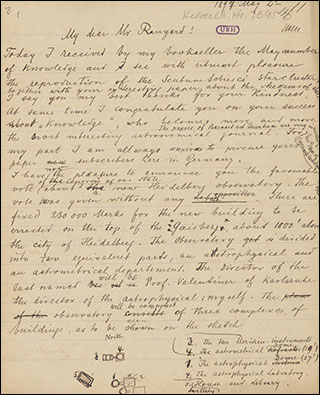 1894 May 5
My dear Mr Ranyard!
UBH
Today I received by my bookseller the May number
of Knowledge and I see with utmost pleasure
the reproduction of the Scutum Sobiesci Star cluster
together with your interesting papers about the
I say you my best thanks for your kindness.
At same time I congratulate you on your success
about "Knowledge", who becomes more and more
The papers of Barnard and are very
the most interesting astronomical journal. For
my part I am always anxious to procure your
paper new subscribers here in Germany.
I have the pleasure to announce you the favourable
of our State
vote about new Heidelberg observatory. The
vote was given without any opposition. There are
fixed 250 000 Marks for the new building to be
erected on the top of the "Gaisberg", about 1000' above
the city of Heidelberg. The Observatory is divided
into two equivalent parts, an astrophysical and
an astrometical departement. The director of the
will be
last named Prof. Valentiner of Karlsruhe
the director of the astrophysical: myself. The
will be composed
observatory of three complexes of
buildings, as to be shown on the sketch
North
3. The two Meridian-instruments
4. The astrometical Dome (19')
1. The astrophysical Dome (27')
2. The astrophysical Laboratory.
5. House and library
dwelling